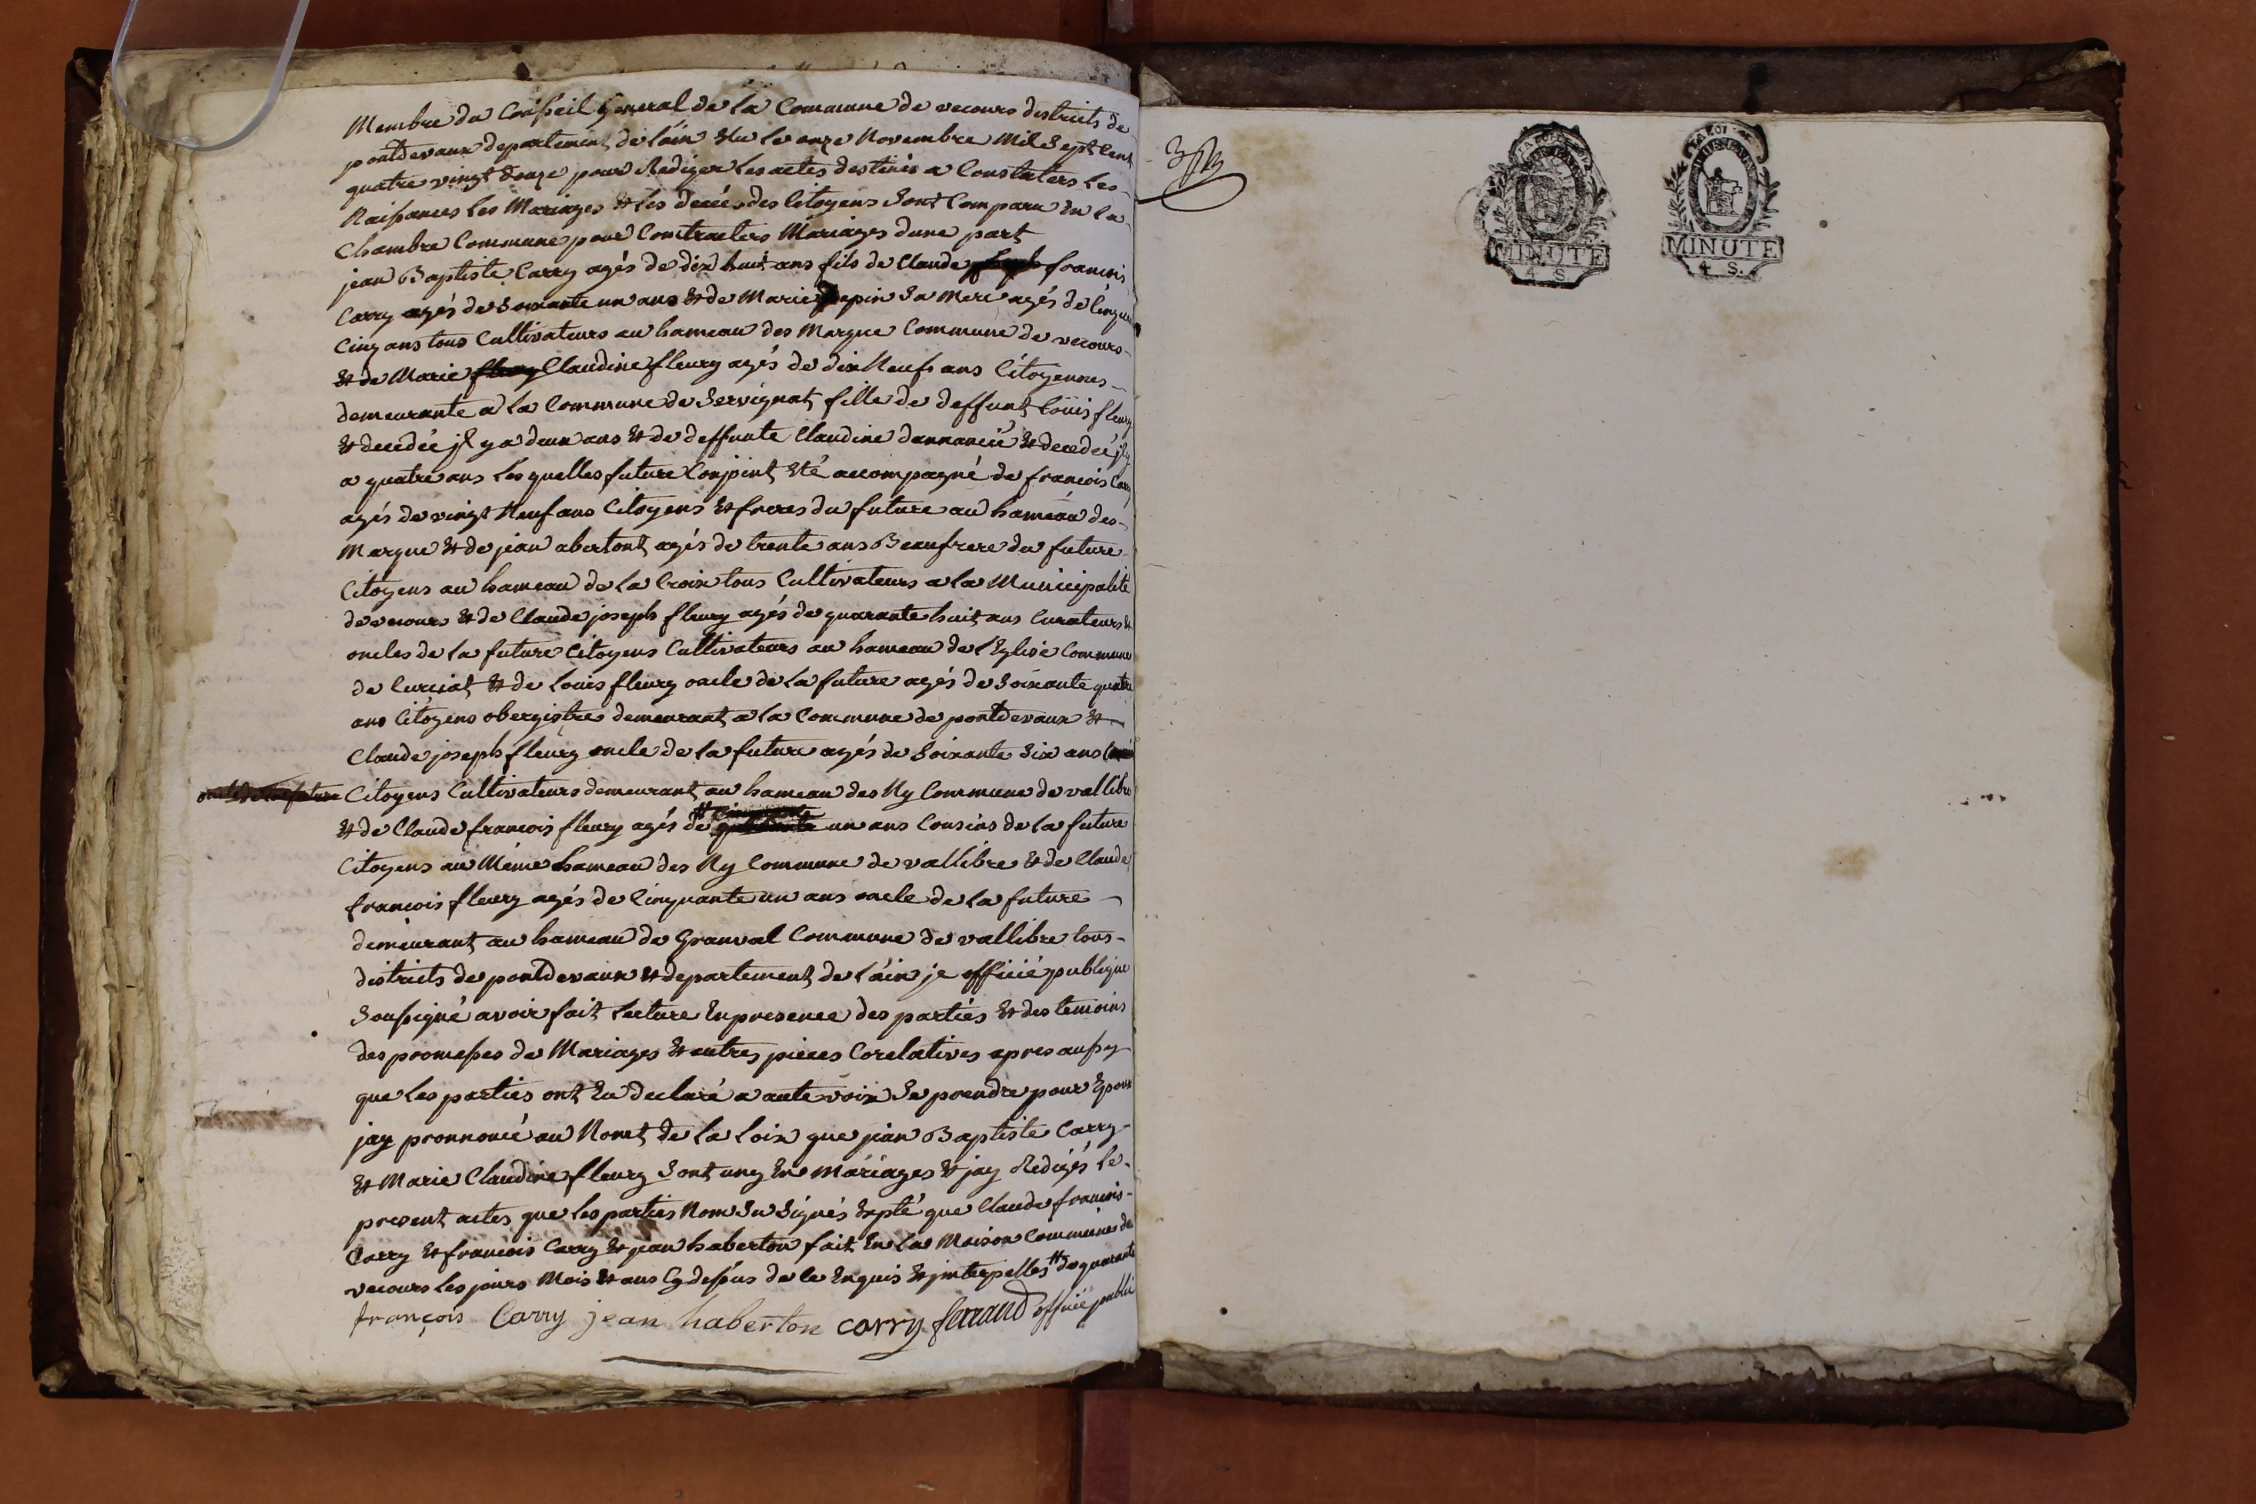 Membre du Conseil General de la Commune de vecours districts de
pontdevaux departement de lain Elu le onze Novembre Mil Sept Cent
quatre vingt douze pour Rediger les actes destinés a Constaters les
Naissances les Mariages et les decés des Citoyens Sont Comparu En la
Chambre Commune pour Contracters Mariages dune part
jean Baptiste Carry agés de dix huit ans fils de Claude francois
Carry agés de Soixante un ans et de Marie pepin Sa Mere agés de Cinqu
Cinq ans tous Cultivateurs au hameau des Margue Commune de vecours
et de Marie fleury Claudine fleury agés de dix Neuf ans Citoyennes
demeurante a la Commune de Servignat fille de deffunt loüis fleury
et decedée jl y a deux ans et de deffunte Claudine dannancié et decedeé jl y
a quatre ans les quelles future Conjoint Eté accompagné de francois Carry
agés de vingt Neuf ans Citoyens et freres du future au hameau des
Margue et de jean abertont agés de trente ans Beaufrere du future
Citoyens au hameau de la Croix tous Cultivateurs a la Municipalité
de vecours et de Claude joseph fleury agés de quarante huit ans Curateurs et
oncles de la future Citoyens Cultivateurs au hameau de l'Eglise Commune
de Curciat et de Louis fleury oncle de la future agés de Soixante quatre
ans Citoyens obergistre demeurant a la Commune de pontdevaux et
Claude joseph fleury oncle de la future agés de Soixante Six ans
oncle de la future Citoyens Cultivateurs demeurant au hameau des Ny Commune de vallibre
et de Claude francois fleury agés de # un ans Cousins de la future
Citoyens au Même hameau des Ny Commune de vallibre et de Claude
francois fleury agés de Cinquante un ans oncle de la future
demeurant au hameau de Granval Commune de vallibre tous
districts de pontdevaux et departement de l'ain je officié publique
Soussigné avoir fait lecture En presence des parties et des temoins
des promesses de Mariages et autres pieces Corelatives apres aussy
que les parties ont Eu declaré a aute voix Se prendre pour Epoux
jay pronnoncé au Nomet de la loix que jean Baptiste Carry
et Marie Claudine fleury Sont uny En Mariages et jay Redigés le
present actes que les parties Nom Su Signés Expté que Claude francois
Carry et francois Carry et jean haberton fait En la Maison Commune de
vecours les jours Mois et ans Cy dessus de le Enquis et jnterpelles # de quarante
françois Carry jean haberton carry ferrand officié public
MINUTE
4 S.
MINUTE
4 S.